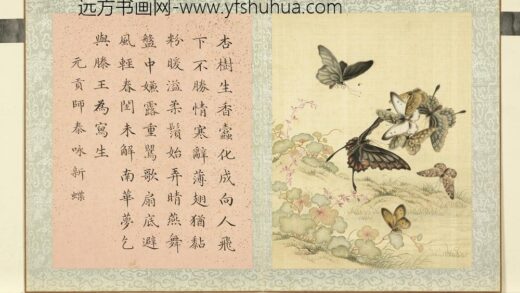 远方书画网-www.yfshuhua.com
杏樹生香蠧化成向人飛
下不勝情寒辭薄翅猶黏
粉暖溢柔鬚始弄晴燕舞
盤中嫌露重鶯歌扇底避
風輕春閨未解南華夢乞
與滕王為寫生
元貢師泰咏新蝶